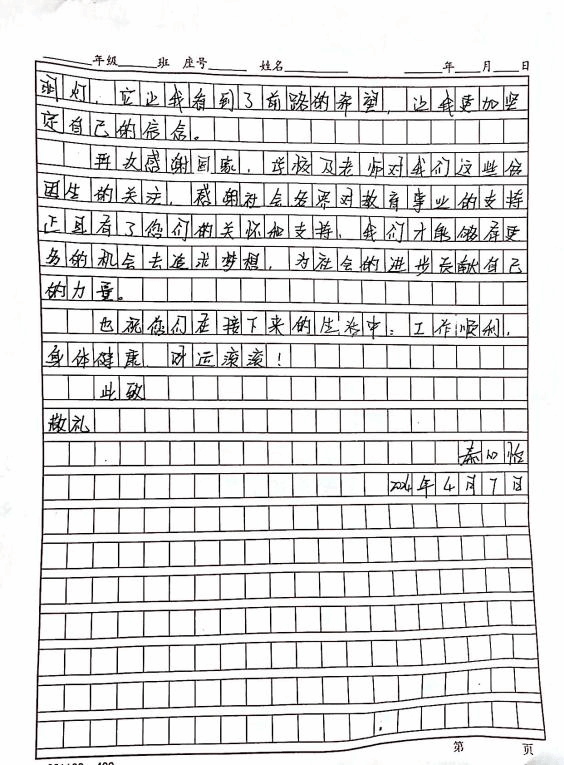 年级 班 座号 姓名 年 月 日
明灯，它让我看到了前路的希望，让我更加坚
定自己的信念。
再次感谢国家、学校及老师对我们这些贫
困生的关注，感谢社会各界对教育事业的支持
正是有了您们的关怀和支持，我们才能够有更
多的机会去追求梦想，为社会的进步贡献自己
的力量。
也祝您们在接下来的生活中：工作顺利，
身体健康 财运滚滚！
此致
敬礼
秦心怡
2024年4月7日
第 页